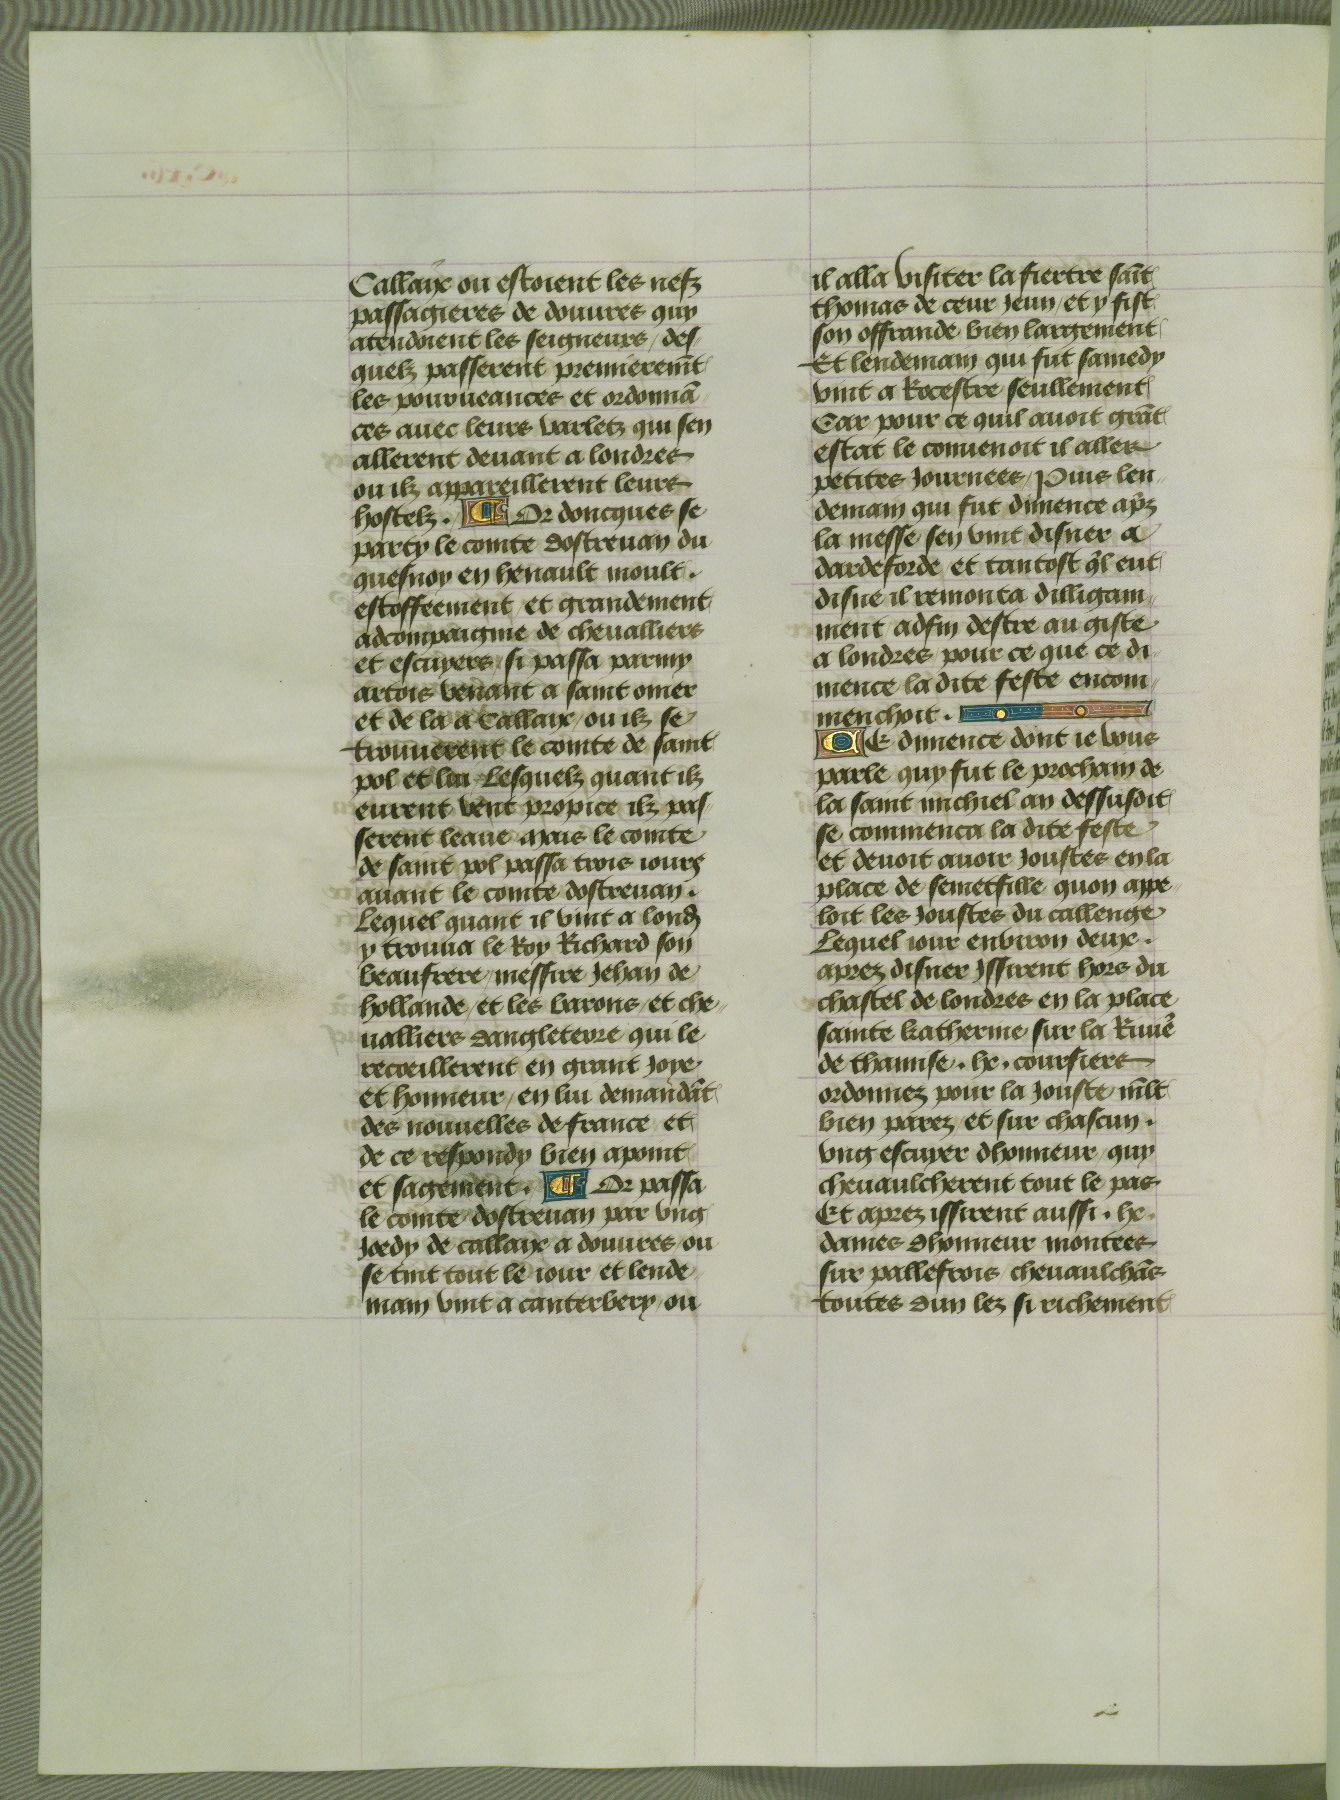 Callaix ou estoient les nefz
passagieres de douures quy
atendoient les seigneurs / des
quelz passerent premieremt̄
les pourueances et ordonnā
ces auec leurs varletz qui sen
allerent deuant a londres
ou ilz appareillerent leurs
hostelz . Or doncques se
party le comte dostreuan du
quesnoy en henault moult .
estoffeement / et grandement
adcompaignie de cheualliers
et escuyers / si passa parmy
artois venant a saint omer
et de la a Callaix / ou ilz se
trouuerent le comte de saint
pol et lui / Lesquelz quant ilz
eurent vent propice ilz pas
serent leaue mais le comte
de saint pol passa trois iours
auant le comte dostreuan .
Lequel quant il vint a lond̄
y trouua le Roy Richard son
beaufrere / messire Jehan de
hollande / et les barons / et che
ualliers dangleterre qui le
recœillerent en grant Joye
et honneur / en lui demandāt
des nouuelles de france et
de ce respondy bien apoint
et sagement . Or passa
le comte dostreuan par vng
Joedy de callaix a douures / ou
se tint tout le iour et lende
main vint a canterbery / ou
il alla visiter la fiertre sāit
thomas de ceur Jeun / et y fist
son offrande bien largement
Et lendemain qui fut samedy
vint a Rocestre seullement
Car pour ce quil auoit grāt
estat le conuenoit il aller
petites Journees / Puis len
demain qui fut dimence ap̄z
la messe sen vint disner a
dardeforde et tantost q̄l eut
disne il remonta dilligam
ment adfin destre au giste
a londres pour ce que ce di
mence la dite feste encom
menchoit .
CE dimence dont ie vous
parle quy fut le prochain de
la saint michiel an dessusdit
se commenca la dite feste
et deuoit auoir Joustes en la
place de semetfille quon appe
loit les Joustes du callenge
Lequel iour enuiron deux .
aprez disner Jssirent hors du
chastel de londres en la place
sainte katherine sur la Riuie᷑
de thamise . lx . coursiers
ordonnez pour la Jouste ml̄t
bien parez et sur chascun .
vng escuyer dhonneur quy
cheuaulcherent tout le pas
Et aprez issirent aussi . lx .
dames dhonneur montees
sur pallefrois cheuaulchās
toutes dun lez si richement